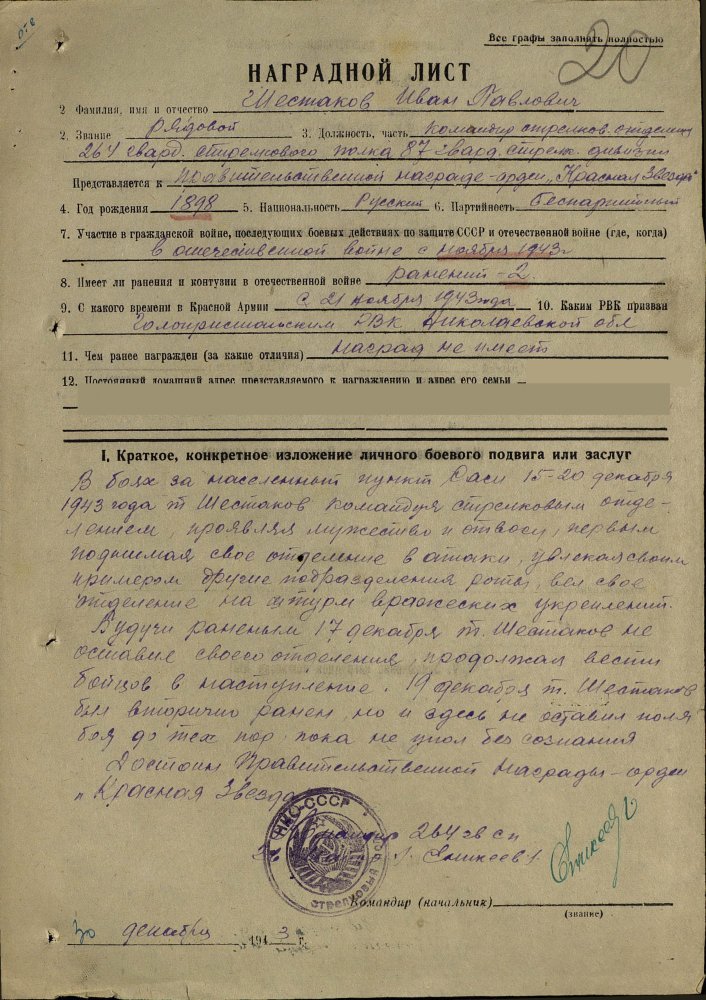 Все графы заполнить полностью
20
НАГРАДНОЙ ЛИСТ
2 Фамилия, имя и отчество Шестаков Иван Павлович
2. Звание рядовой 3. Должность, часть Командир стрелков. отделения
264 гвард. стрелкового полка 87 гвард. стрелк. дивизии
Представляется к правительственной награде-орден „Красная Звезда"
4. Год рождения 1898 5. Национальность Русский 6. Партийность Беспартийный
7. Участие в гражданской войне, последующих боевых действиях по защите СССР и отечественной войне (где, когда)
в отечественной войне с ноября 1943 г
8. Имеет ли ранения и контузии в отечественной войне ранений - 2.
9. С какого времени в Красной Армии с 21 ноября 1943 года 10. Каким РВК призван
Голопристанским РВК Николаевской обл
11. Чем ранее награжден (за какие отличия) наград не имеет
12. Постоянный домашний адрес представляемого к награждению и адрес его семьи
I. Краткое, конкретное изложение личного боевого подвига или заслуг
В боях за населенный пункт 15-20 декабря
1943 года т. Шестаков командуя стрелковым отде-
лением, проявляя мужество и отвагу, первым
поднимая свое отделение в атаки, увлекая своим
примером другие подразделения роты, вел свое
отделение на штурм вражеских укреплений.
Будучи раненым 17 декабря т. Шестаков не
оставил своего отделения, продолжал вести
бойцов в наступление. 19 декабря т. Шестаков
был вторично ранен, но и здесь не оставил поля
боя до тех пор, пока не упал без сознания
Достоин Правительственной Награды-орден
„Красная Звезда
НКО-СССР
Командир 264 гв сп
СТРЕЛКОВЫЙ
Командир (начальник)
(звание)
30 декабря 1943 г.